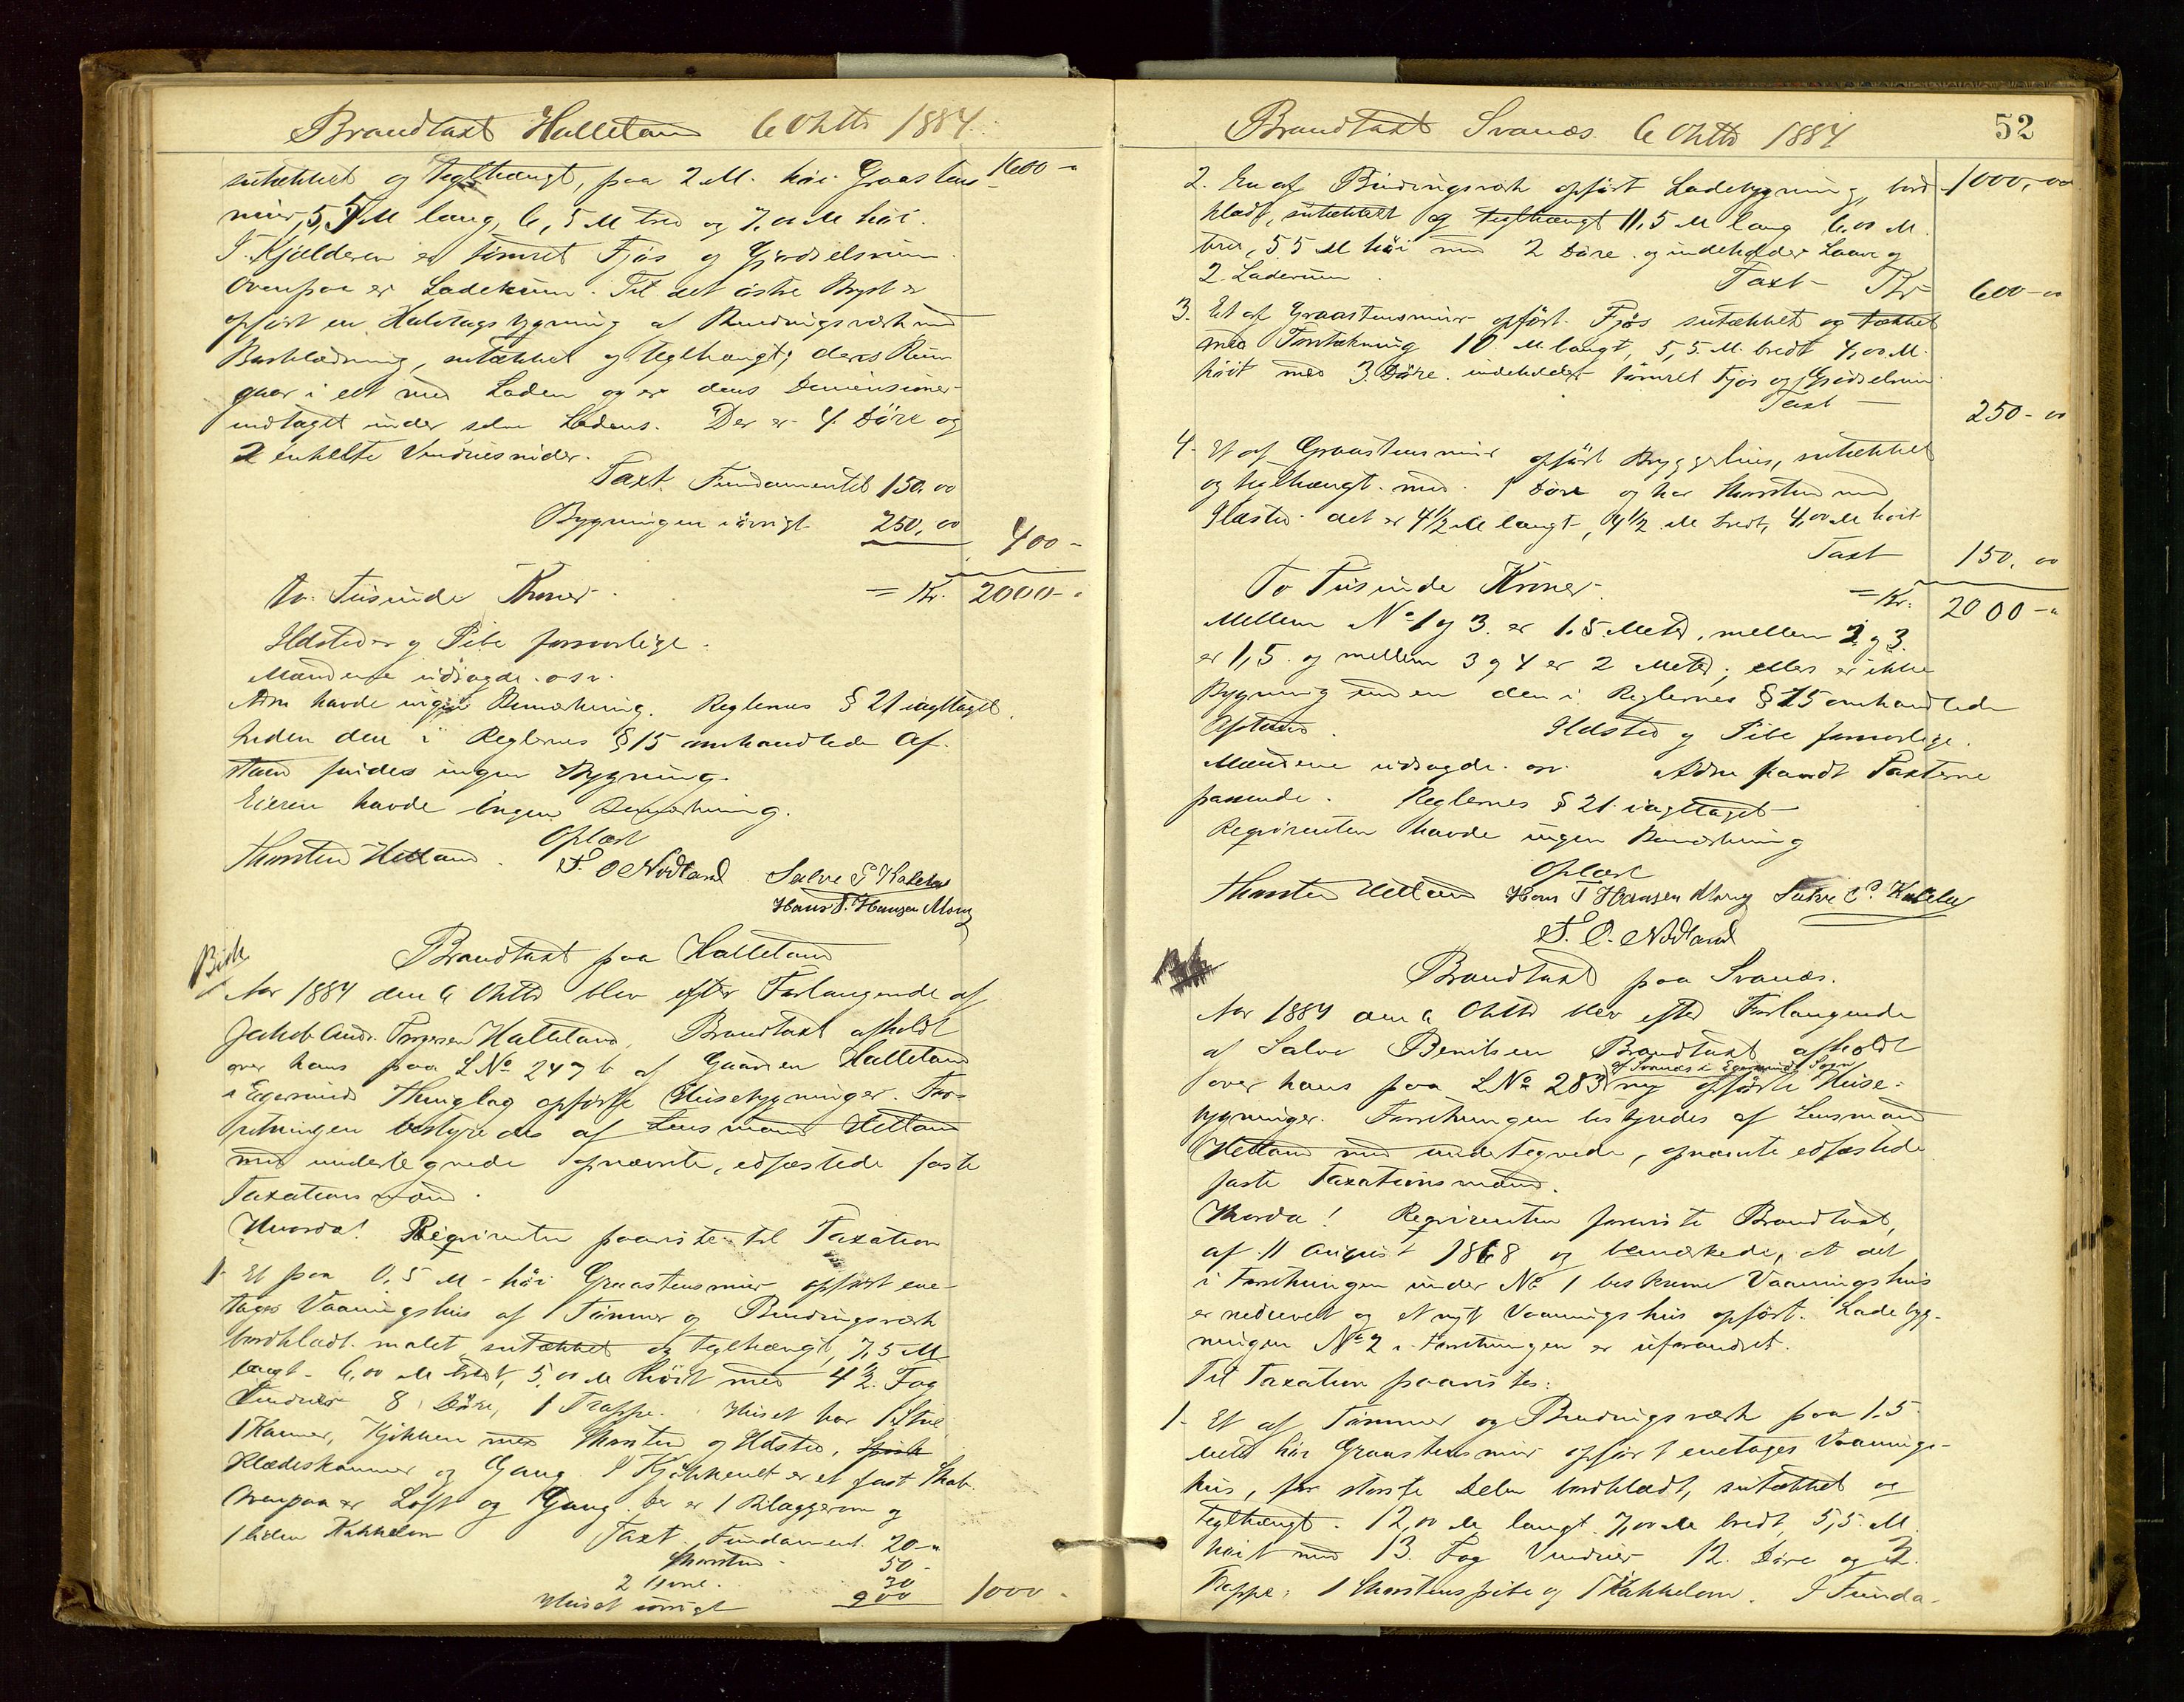 Brandtaxt Halleland 6 Oktbr 1884
sutækket og teglhængt, paa 2 M. høi Graastens- 1600 -
muur, 5,5 M lang, 6,5 M bred og 7,00 M høi.
I Kjælderen er tømret Fjøs og Gjødselsrum.
Ovenpaa er Laderum. Til det østre Bryst er
opført en Halvtagsbygning af Bindingsværk med
Bordklædning, sutækket og teglhængt; dens Rum
gaar i eet med Laden og er dens Demensioner
indtaget under selve Ladens. Der er 4 Døre og
2 enkelte Vinduesruder.
Taxt. Fundamentet 150,00
Bygningen iøvrigt 250,00 400 -
To Tusinde Kroner = Kr. 2000 -
Ildsteder og Pibe forsvarlige.
Mændene udsagde osv.
Adm havde ingen Bemærkning. Reglernes § 21 iagttaget.
Inden den i Reglernes § 15 omhandlede Af-
stand findes ingen Bygning.
Eieren havde ingen Bemærkning.
Oplæst
Thorsten Hetland. S. O. Nodland Salve P Koldal
Hans T. Hansen Mong
Birk
Brandtaxt paa Halleland
Aar 1884 den 6 Oktbr blev efter Forlangende af
Jakob Andr. Torgersen Halleland, Brandtaxt afholdt
over hans paa LNo 247 b af Gaarden Halleland
i Egersunds Thinglag opførte Husebygninger. For-
retningen bestyredes af Lensmand Hetland
med undertegnede opnævnte, edfæstede faste
Taxationsmænd.
Hvorda! Reqvirenten paaviste til Taxation
1. Et paa 0,5 M høi Graastensmuur opført ene-
tages Vaaningshus af Tømmer og Bindingsværk
bordklædt, malet, sutækket og teglhængt, 7,5 M
langt, 6,00 M bredt, 5,00 M høit med 4½ Fag
Vinduer 8 Døre, 1 Trappe. Huset har 1 Stue
1 Kamer, Kjøkken med Skorsten og Ildsted,
Klædeskammer og Gang. I Kjøkkenet er et fast Skab.
Ovenpaa er Loft og Gang. Der er 1 Bilæggerovn og
1 liden Kakkelovn Taxt. Fundament 20 -
Skorsten 50 -
2 Ovne. 30
Huset iøvrigt 900 1000 -
Brandtaxt Svanæs 6 Oktbr 1884 52
2. En af Bindingsværk opført Ladebygning, bord- 1000,00
klædt, sutækket og teglhængt 11,5 M lang 6,00 M.
bred, 5,5 M høi med 2 Døre og indeholder Laave og
2 Laderum. Taxt Kr 600-00
3. Et af Graastensmuur opført Fjøs sutækket og tækket
med Torvtækning 10 M langt, 5,5 M. bredt 4,00 M.
høit med 3 Døre indeholder tømret Fjøs og Gjødselsrum.
Taxt 250-00
4. Et af Graastensmuur opført Bryggehus, sutækket
og teglhængt med 1 Døre og har Skorsten med
Ildsted det er 4½ M langt, 4½ M bredt, 4,00 M høit
Taxt 150,00
To Tusinde Kroner. = Kr. 2000 -
Mellem No 1 og 3 er 1,5 Meter, mellem 2 og 3
er 1,5 og mellem 3 og 4 er 2 Meter; ellers er ikke
Bygning inden den i Reglernes § 15 omhandlede
Afstand. Ildsted og Pibe forsvarlige.
Mændene udsagde osv. Adm fandt Taxterne
passende. Reglernes § 21 iagttaget
Reqvirenten havde ingen Bemærkning
Oplæst
Thorsten Hetland Hans T Hansen Mong Salve P. Koldal
S. O. Nodland
Brandtaxt paa Svanæs.
Aar 1884 den 6 Oktbr blev efter Forlangende
af Salve Bentsen Brandtaxt afholdt
af Svanæs i Egersunds Sogn
over hans paa LNo 283 ny opførte Huse-
bygninger. Forretningen bestyredes af Lensmand
Hetland med undertegnede, opnævnte edfæstede
faste Taxationsmænd.
Hvorda! Reqvirenten foreviste Brandtaxt,
af 11 August 1868 og bemærkede, at det
i Forretningen under No 1 beskrevne Vaaningshus
er nedrevet og et nyt Vaaningshus opført. Ladebyg-
ningen No 2 i Forretningen er uforandret.
Til Taxation paavistes:
1. Et af Tømmer og Bindingsværk paa 1.5
høi Graastensmuur opført enetages Vaanings-
hus, for største Delen bordklædt, sutækket og
teglhængt. 12,00 M langt 7,00 M bredt 5,5 M
høit med 13 Fag Vinduer 12 Døre og 2
Trapper, 1 Skorstenspibe og 1 Kakkelovn. I Funda-